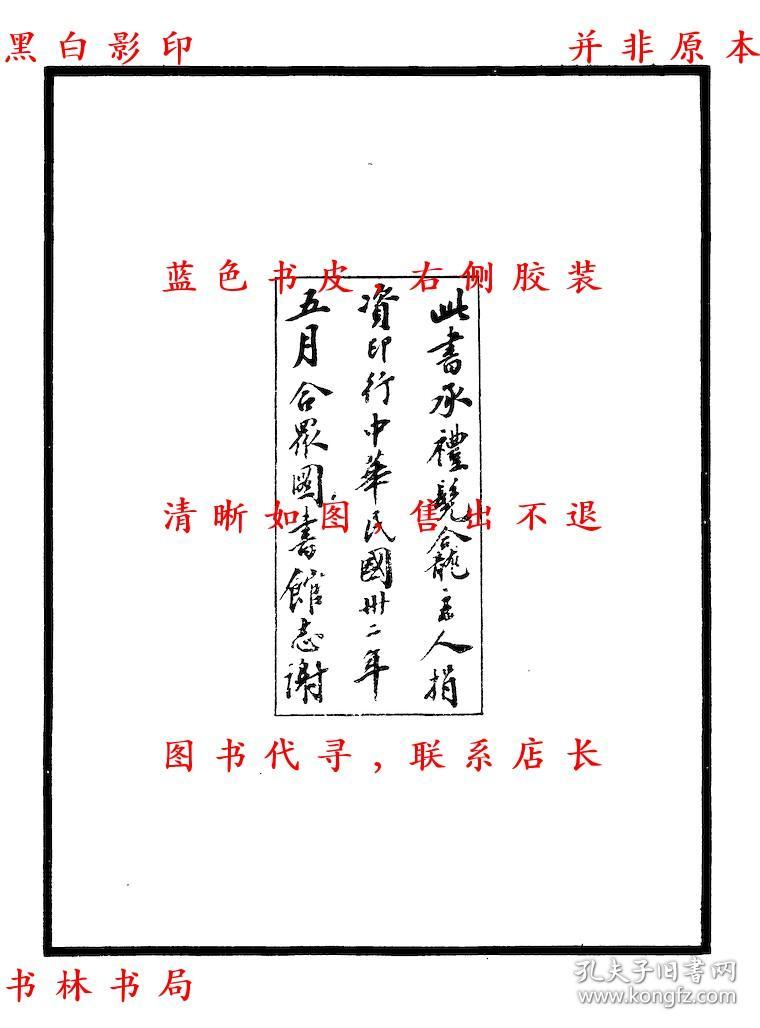 黑白影印
并非原本
蓝色书皮，右侧胶装
此書承禮髡龕主人捐
資印行中華民國卅二年
五月合眾圖書館志謝
清晰如图，售出不退
图书代寻，联系店长
书林书局
孔夫子旧书网
www.kongfz.com